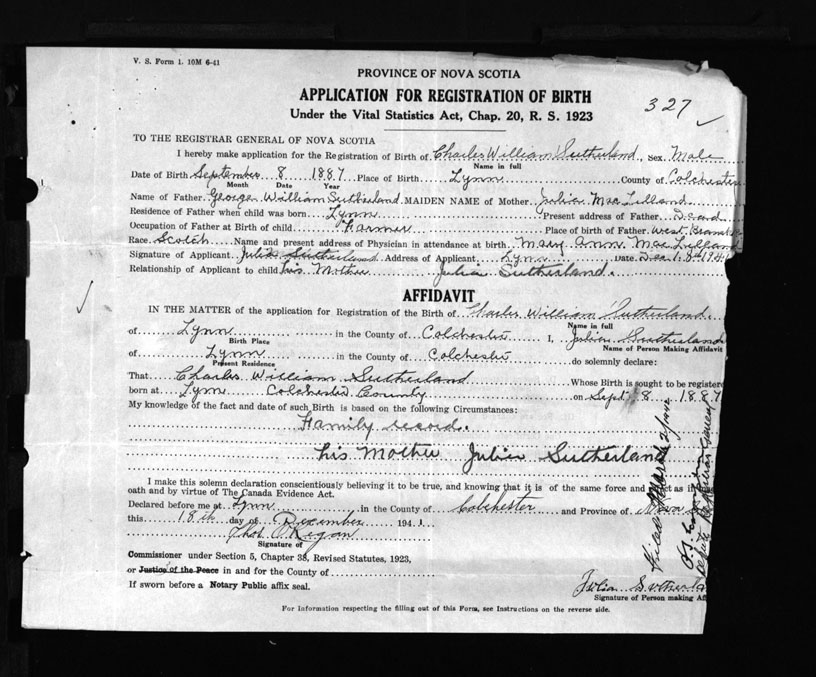 V. S. Form 1. 10M 6-41
PROVINCE OF NOVA SCOTIA
APPLICATION FOR REGISTRATION OF BIRTH
327
Under the Vital Statistics Act, Chap. 20, R. S. 1923
TO THE REGISTRAR GENERAL OF NOVA SCOTIA
I hereby make application for the Registration of Birth of Charles William Sutherland, Sex Male
Name in full
Date of Birth September 8 1887 Place of Birth Lynn County of Colchester
Month Date Year
Name of Father George William Sutherland MAIDEN NAME of Mother Julia Mac Lelland
Residence of Father when child was born Lynn Present address of Father Dead
Occupation of Father at Birth of child Farmer Place of birth of Father West
Race Scotch Name and present address of Physician in attendance at birth Mary Ann Mac Lelland
Signature of Applicant Julia Sutherland Address of Applicant Lynn Date Dec 18th 1941
Relationship of Applicant to child his Mother Julia Sutherland.
AFFIDAVIT
IN THE MATTER of the application for Registration of the Birth of Charles William Sutherland
Name in full
of Lynn in the County of Colchester I, Julia Sutherland
Birth Place Name of Person Making Affidavit
of Lynn in the County of Colchester do solemnly declare:
Present Residence
That Charles William Sutherland Whose Birth is sought to be registere
born at Lynn Colchester County on Sept 8 1887
My knowledge of the fact and date of such Birth is based on the following Circumstances:
Family record.
his Mother Julia Sutherland
I make this solemn declaration conscientiously believing it to be true, and knowing that it is of the same force and as if ma
oath and by virtue of The Canada Evidence Act.
Declared before me at Lynn in the County of Colchester and Province of Nova
this 18th day of December 1941.
Thos Regan
Signature of
Commissioner under Section 5, Chapter 38, Revised Statutes, 1923,
or Justice of the Peace in and for the County of
If sworn before a Notary Public affix seal.
Julia Sutherla
Signature of Person making Aff
For Information respecting the filling out of this Form, see Instructions on the reverse side.